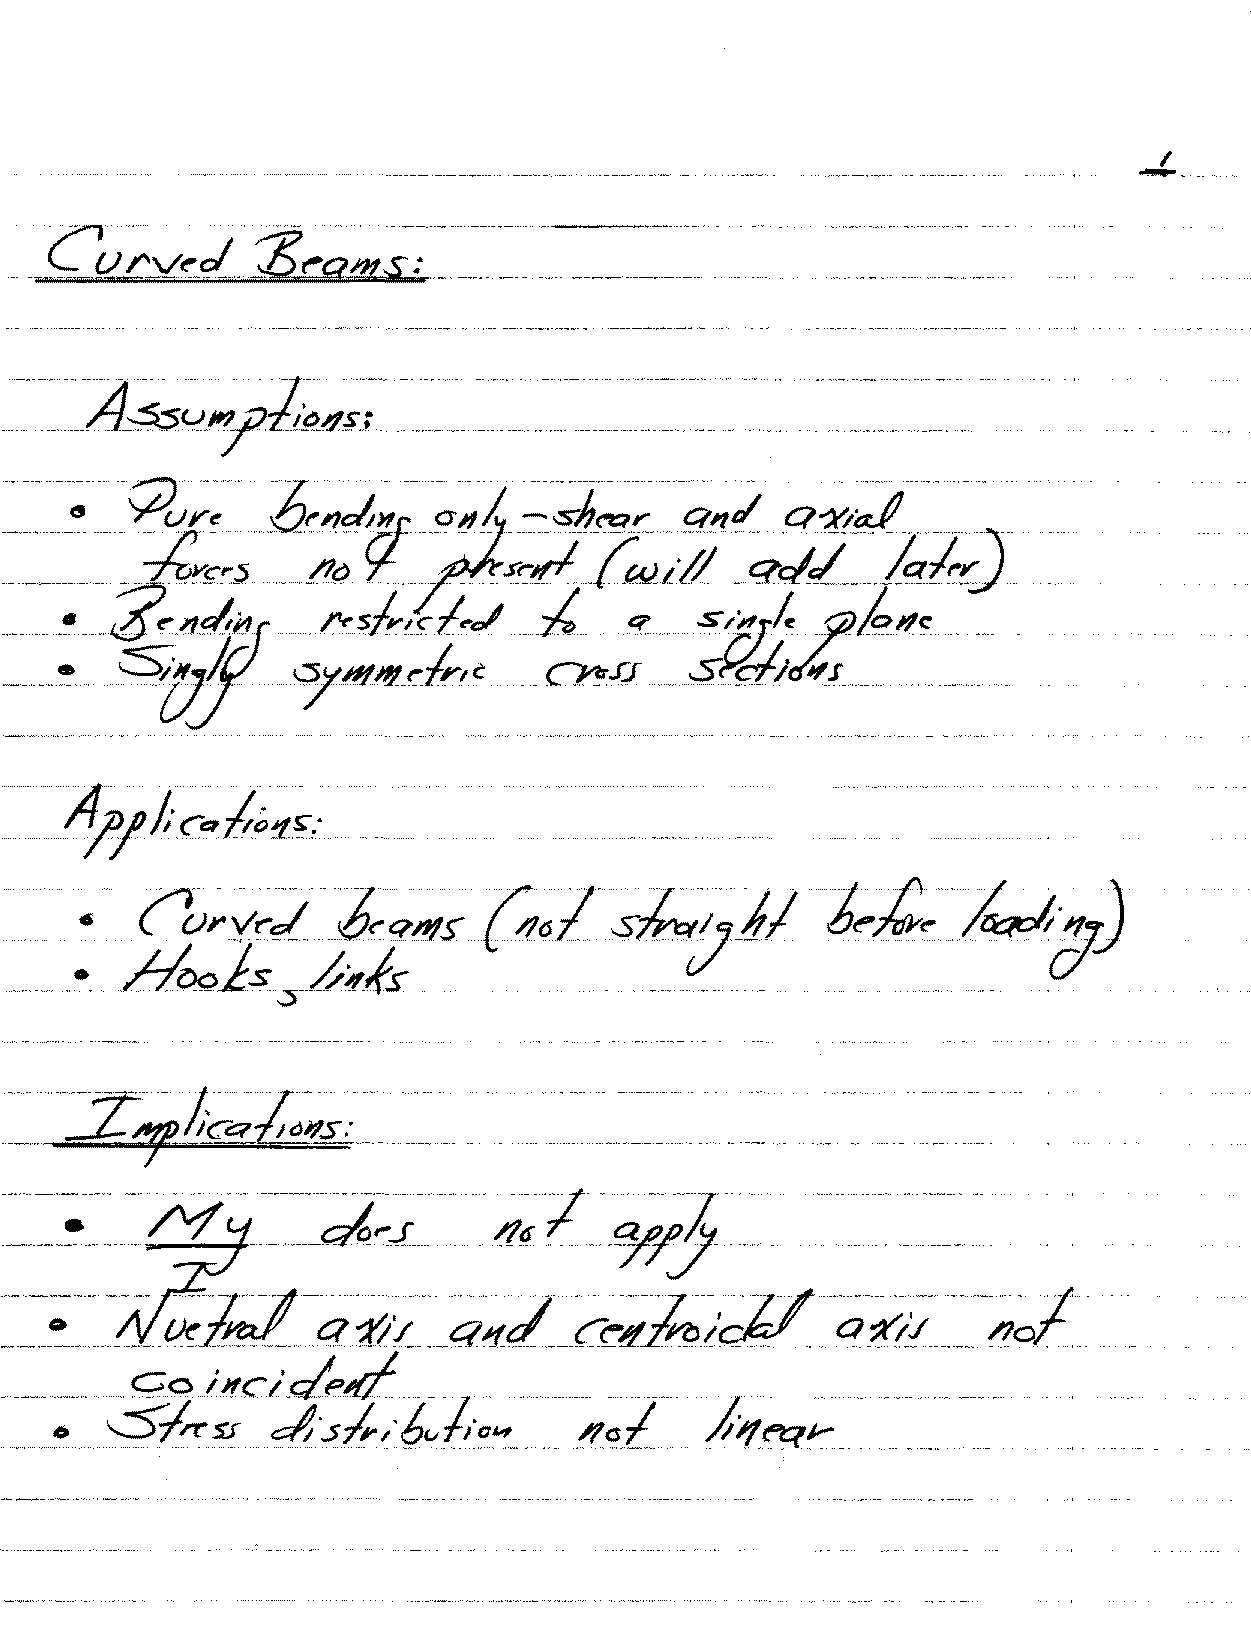 1
Curved Beams:
Assumptions:
• Pure bending only - shear and axial
forces not present (will add later)
• Bending restricted to a single plane
• Singly symmetric cross sections
Applications:
• Curved beams (not straight before loading)
• Hooks, links
Implications:
• My does not apply
I
• Nuetral axis and centroidal axis not
coincident
• Stress distribution not linear